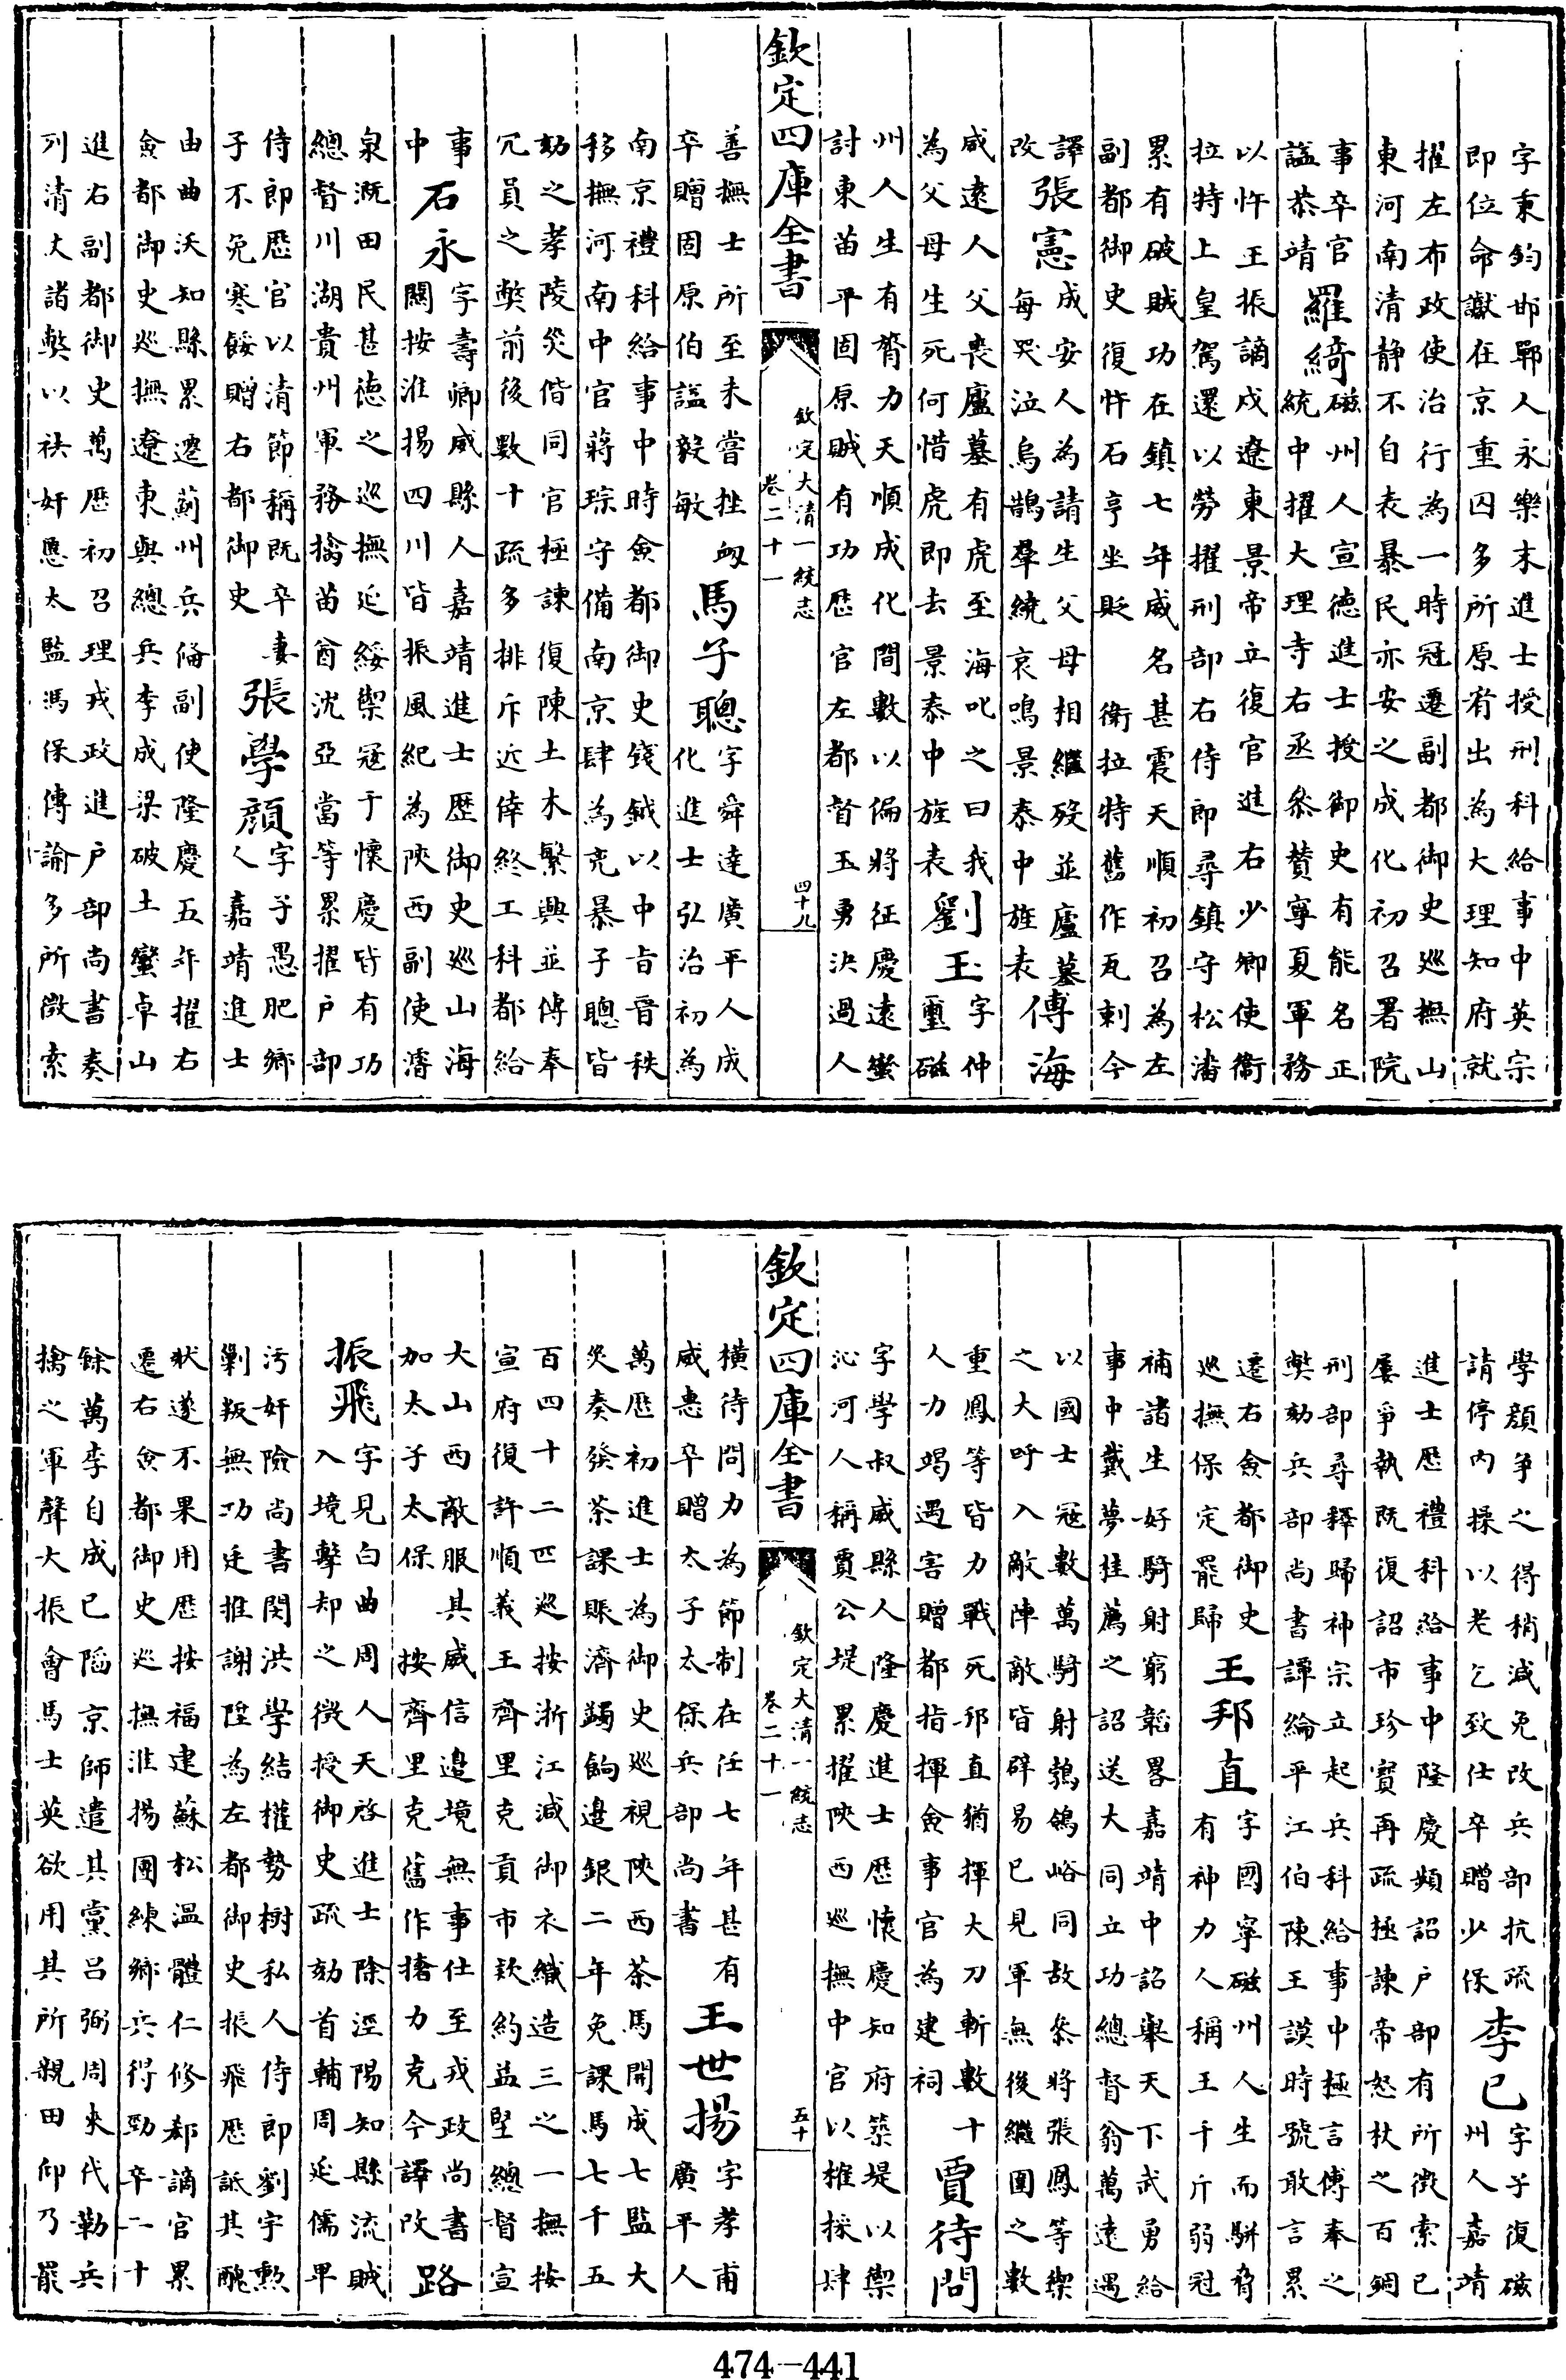 字秉鈞邯鄲人永樂末進士授刑科給事中英宗
即位命讞在京重囚多所原宥出為大理知府就
擢左布政使治行為一時冠遷副都御史巡撫山
東河南清静不自表暴民亦安之成化初召署院
事卒官
諡恭靖
羅綺
磁州人宣德進士授御史有能名正
統中擢大理寺右丞叅贊寧夏軍務
以忤王振謫戍遼東景帝立復官進右少卿使衛
拉特上皇駕還以勞擢刑部右侍郎尋鎮守松潘
累有破賊功在鎮七年威名甚震天順初召為左
副都御史復忤石亨坐貶 衛拉特舊作瓦剌今
譯
改
張憲
成安人為請生父母相繼歿並廬墓
每哭泣烏鵲羣繞哀鳴景泰中旌表
傅海
威遠人父喪廬墓有虎至海叱之曰我
為父母生死何惜虎即去景泰中旌表
劉玉
字仲
璽磁
州人生有膂力天順成化間數以偏將征慶遠蠻
討東苗平固原賊有功歷官左都督玉勇決過人
欽定四庫全書
欽定大清一統志
卷二十一
四十九
善撫士所至未嘗挫衂
卒贈固原伯諡毅敏
馬子聰
字舜達廣平人成
化進士弘治初為
南京禮科給事中時僉都御史錢鉞以中旨晉秩
移撫河南中官蔣琮守備南京肆為兇暴子聰皆
劾之孝陵災偕同官極諫復陳土木繁興並傳奉
冗員之弊前後數十疏多排斥近倖終工科都給
事
中
石永
字壽卿威縣人嘉靖進士歷御史巡山海
關按淮揚四川皆振風紀為陝西副使濬
泉溉田民甚德之巡撫延綏禦寇于懷慶皆有功
總督川湖貴州軍務擒苗酋沈亞當等累擢戶部
侍郎歷官以清節稱既卒妻
子不免寒餒贈右都御史
張學顔
字子愚肥鄉
人嘉靖進士
由曲沃知縣累遷薊州兵備副使隆慶五年擢右
僉都御史巡撫遼東與總兵李成梁破土蠻卓山
進右副都御史萬歷初召理戎政進户部尚書奏
列清丈諸弊以袪奸慝太監馮保傳諭多所徵索
學顔爭之得稍減免改兵部抗疏
請停内操以老乞致仕卒贈少保
李已
字子復磁
州人嘉靖
進士歷禮科給事中隆慶頻詔户部有所徵索已
屢爭執既復詔市珍寳再疏極諫帝怒杖之百錮
刑部尋釋歸神宗立起兵科給事中極言傅奉之
弊劾兵部尚書譚綸平江伯陳王謨時號敢言累
遷右僉都御史
巡撫保定罷歸
王邦直
字國寧磁州人生而駢脅
有神力人稱王千斤弱冠
補諸生好騎射窮韜畧嘉靖中詔舉天下武勇給
事中戴夢桂薦之詔送大同立功總督翁萬達遇
以國士冦數萬騎射鵓鴿峪同故叅將張鳳等禦
之大呼入敵陣敵皆辟易已見軍無後繼圍之數
重鳳等皆力戰死邦直猶揮大刀斬數十
人力竭遇害贈都指揮僉事官為建祠
賈待問
字學叔威縣人隆慶進士歷懷慶知府築堤以禦
沁河人稱賈公堤累擢陝西巡撫中官以榷採肆
欽定四庫全書
欽定大清一統志
卷二十一
五十
橫待問力為節制在任七年甚有
威惠卒贈太子太保兵部尚書
王世揚
字孝甫
廣平人
萬歷初進士為御史巡視陜西茶馬開成七監大
災奏發茶課賑濟蠲餉邊銀二年免課馬七千五
百四十二匹巡按浙江減御衣織造三之一撫按
宣府復許順義王齊里克貢市欵約益堅總督宣
大山西敵服其威信邉境無事仕至戎政尚書
加太子太保 按齊里克舊作撦力克今譯改
路振飛
字見白曲周人天啓進士除涇陽知縣流賊
入境擊却之徵授御史疏劾首輔周延儒卑
汚奸險尚書閔洪學結權勢樹私人侍郎劉宇烈
剿叛無功廷推謝陞為左都御史振飛歷詆其醜
狀遂不果用歷按福建蘇松温體仁修郄謫官累
遷右僉都御史巡撫淮揚團練鄉兵得勁卒二十
餘萬李自成已陷京師遣其黨呂弼周來代勒兵
擒之軍聲大振會馬士英欲用其所親田仰乃罷
474-441